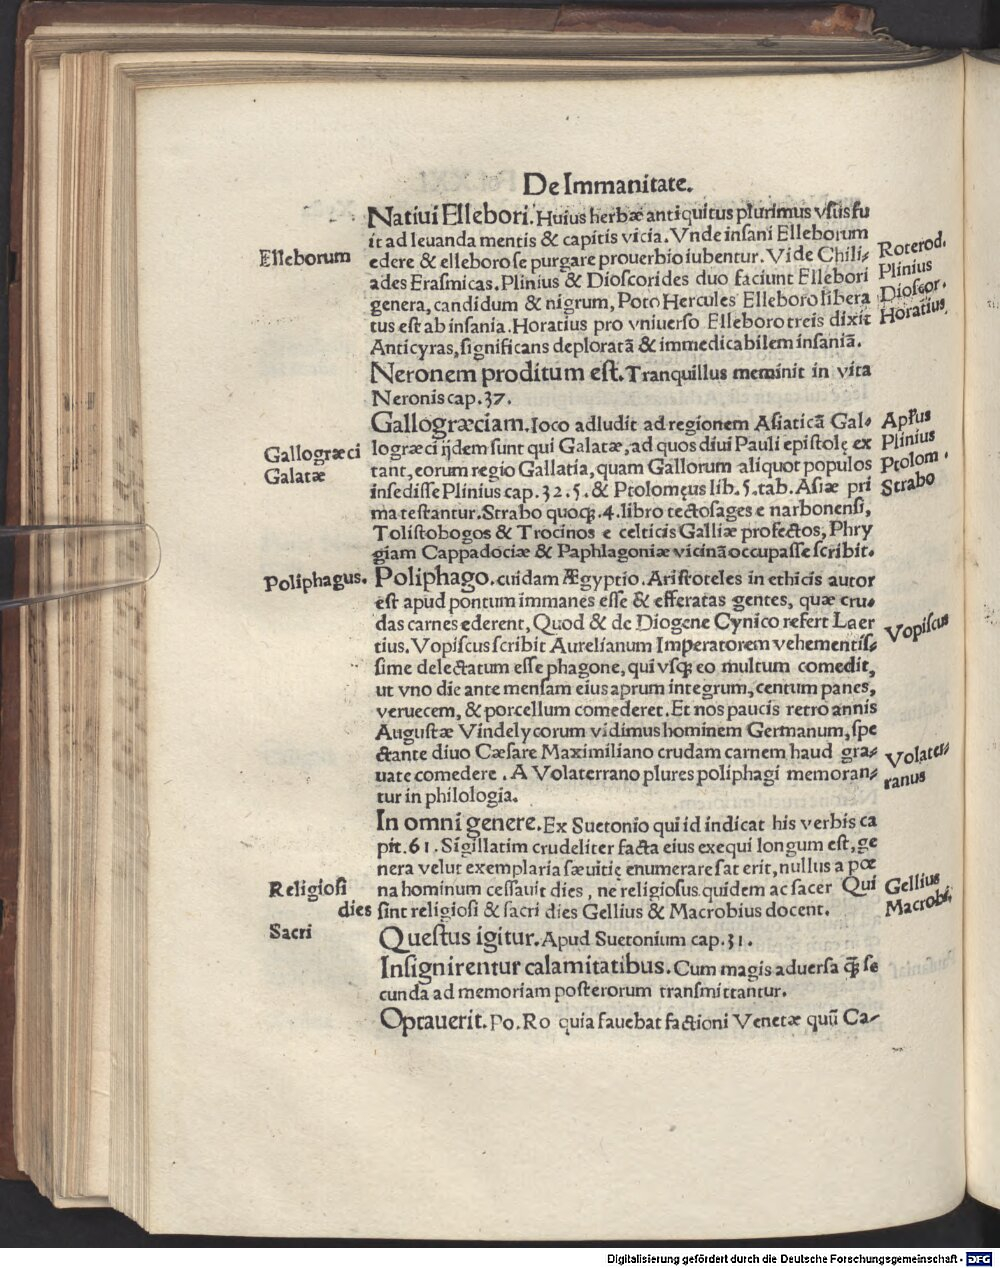 De Immanitate.
Natiui Ellebori. Huius herbæ antiquitus plurimus vſus fu
it ad leuanda mentis & capitis vicia. Vnde inſani Elleborum
Elleborum
edere & elleboro ſe purgare prouerbio iubentur. Vide Chili⸗
Roterod.
ades Eraſmicas. Plinius & Dioſcorides duo faciunt Ellebori
Plinius
genera, candidum & nigrum, Poto Hercules Elleboro libera
Dioſcor.
tus eſt ab inſania. Horatius pro vniuerſo Elleboro treis dixit
Horatius.
Anticyras, ſignificans deploratā & immedicabilem inſaniā.
Neronem proditum eſt. Tranquillus meminit in vita
Neronis cap. 37.
Gallogræciam. Ioco adludit ad regionem Aſiaticā Gal⸗
Aprus
Gallogræci
logræci ijdem ſunt qui Galatæ, ad quos diui Pauli epiſtolę ex
Plinius
Galatæ
tant, eorum regio Gallatia, quam Gallorum aliquot populos
Ptolom.
inſediſſe Plinius cap. 32. 5. & Ptolomęus lib. 5. tab. Aſiæ pri
Strabo
ma teſtantur. Strabo quoqꝫ. 4. libro tectoſages e narbonenſi,
Toliſtobogos & Trocinos e celticis Galliæ profectos, Phry
giam Cappadociæ & Paphlagoniæ vicinā occupaſſe ſcribit.
Poliphagus.
Poliphago. cuidam Ægyptio. Ariſtoteles in ethicis autor
eſt apud pontum immanes eſſe & efferatas gentes, quæ cru⸗
das carnes ederent, Quod & de Diogene Cynico refert Laer
Vopiſcus
tius. Vopiſcus ſcribit Aurelianum Imperatorem vehementiſ⸗
ſime delectatum eſſe phagone, qui vſqꝫ eo multum comedit,
ut vno die ante menſam eius aprum integrum, centum panes,
veruecem, & porcellum comederet. Et nos paucis retro annis
Auguſtæ Vindelycorum vidimus hominem Germanum, ſpe
ctante diuo Cæſare Maximiliano crudam carnem haud gra⸗
Volater⸗
uate comedere. A Volaterrano plures poliphagi memoran⸗
ranus
tur in philologia.
In omni genere. Ex Suetonio qui id indicat his verbis ca
pit. 61. Sigillatim crudeliter facta eius exequi longum eſt, ge
nera velut exemplaria ſæuitię enumerare ſat erit, nullus a pœ
Religioſi
na hominum ceſſauit dies, ne religioſus quidem ac ſacer Qui
Gellius
dies
ſint religioſi & ſacri dies Gellius & Macrobius docent.
Macrobi.
Sacri
Queſtus igitur. Apud Suetonium cap. 31.
Inſignirentur calamitatibus. Cum magis aduerſa q̄ꝫ ſe
cunda ad memoriam poſterorum tranſmittantur.
Optauerit. Po. Ro quia fauebat factioni Venetæ quū Ca⸗
Digitalisierung gefördert durch die Deutsche Forschungsgemeinschaft - DFG